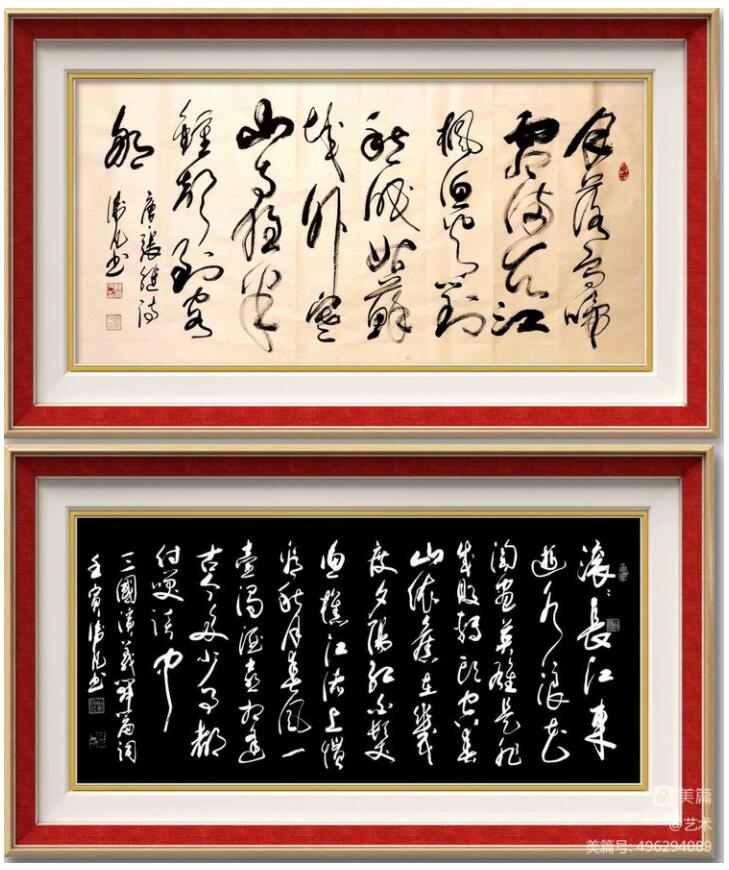 月落烏啼
霜满天江
楓渔火對
愁眠姑蘇
城外寒
山寺夜半
鐘聲到客
船
唐張继诗
凡书
滚〻長江東
逝水浪花
淘盡英雄是非
成敗轉头空青
山依舊在幾
度夕陽红白髮
渔樵江渚上惯
看秋月春风一
壺濁酒喜相逢
古今多少事都
付笑谈中
三國演義開篇词
壬寅凡书
美篇
@艺术
美篇号: 496294089